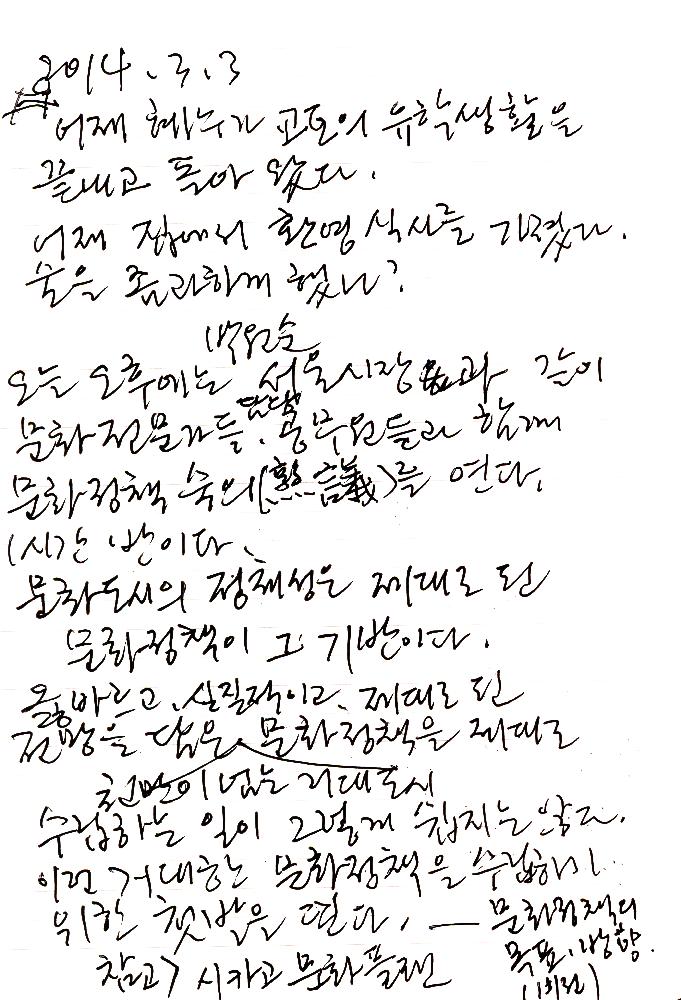 2014.3.3
어제 혜누가 교토의 유학생활을
끝내고 돌아 왔다.
어제 집에서 환영 식사를 가졌다.
술을 좀 과하게 했나?
박원순
오늘 오후에는 서울시장과 같이
담당
문화전문가들, 공무원들과 함께
문화정책 숙의(熟議)를 연다.
1시간 반이다.
문화도시의 정체성은 제대로 된
문화정책이 그 기반이다.
올바르고, 실질적이고, 제대로 된
전망을 담은 문화정책을 제대로
천만이 넘는 거대도시
수립하는 일이 그렇게 쉽지는 않다.
이런 거대한 문화정책을 수립하기
위한 첫발을 뗀다. — 문화정책의
목표, 방향.
(비전)
참고> 시카고 문화플랜